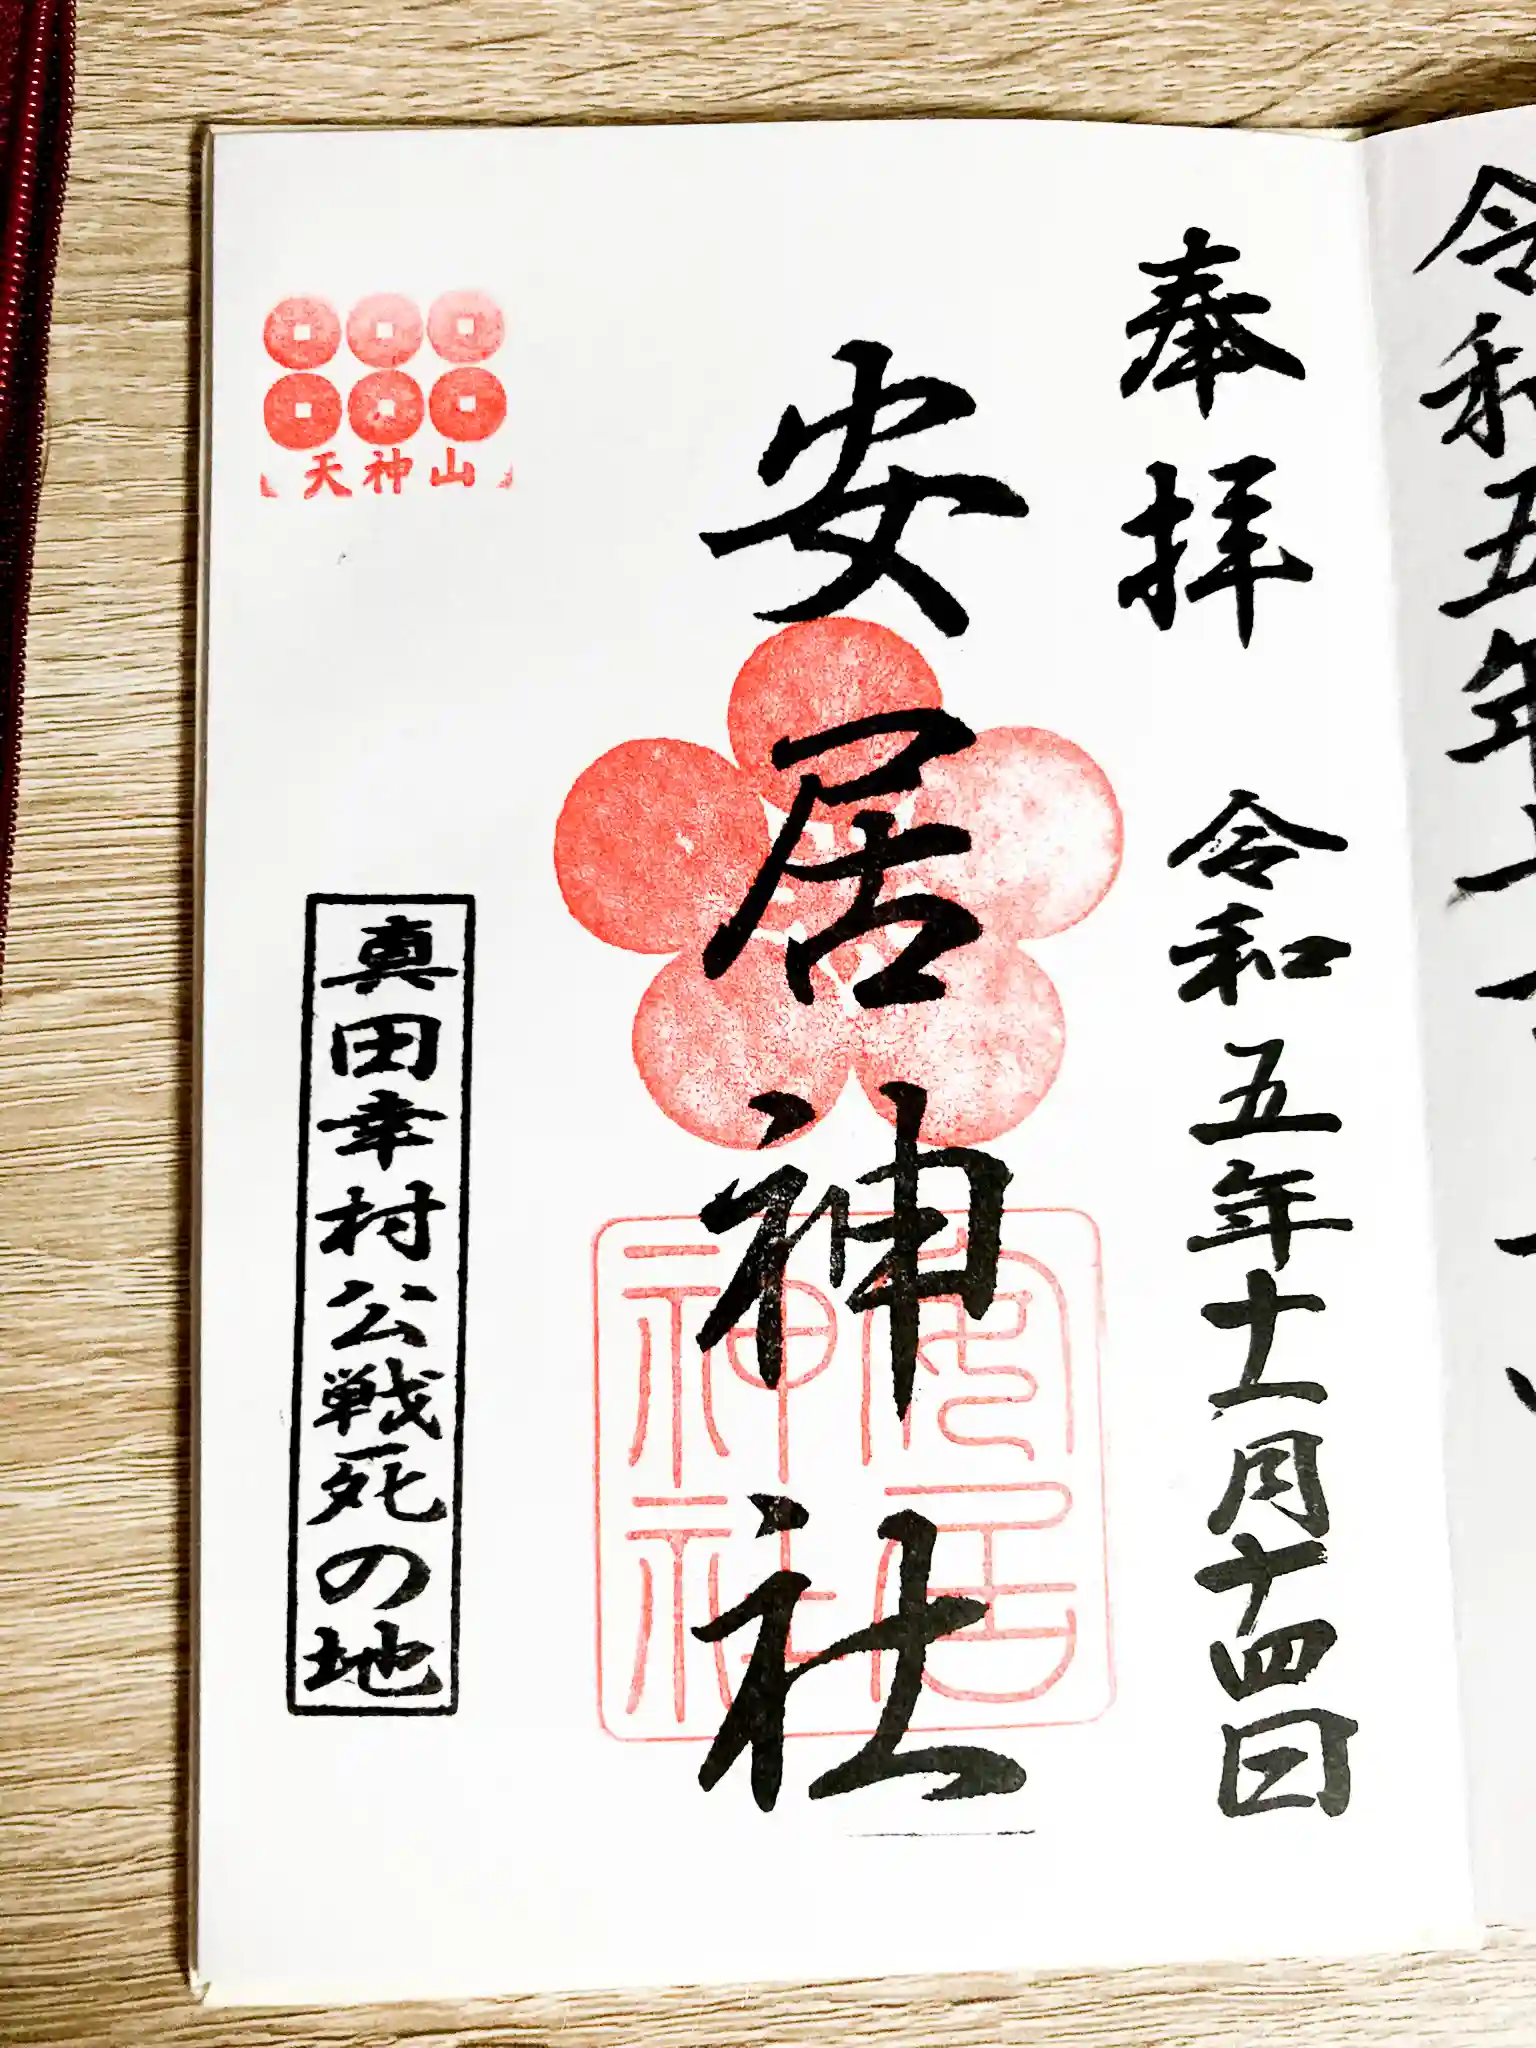 令和五年十
奉拝
令和五年十一月十四日
安居神社
安居神社
天神山
真田幸村公戦死の地